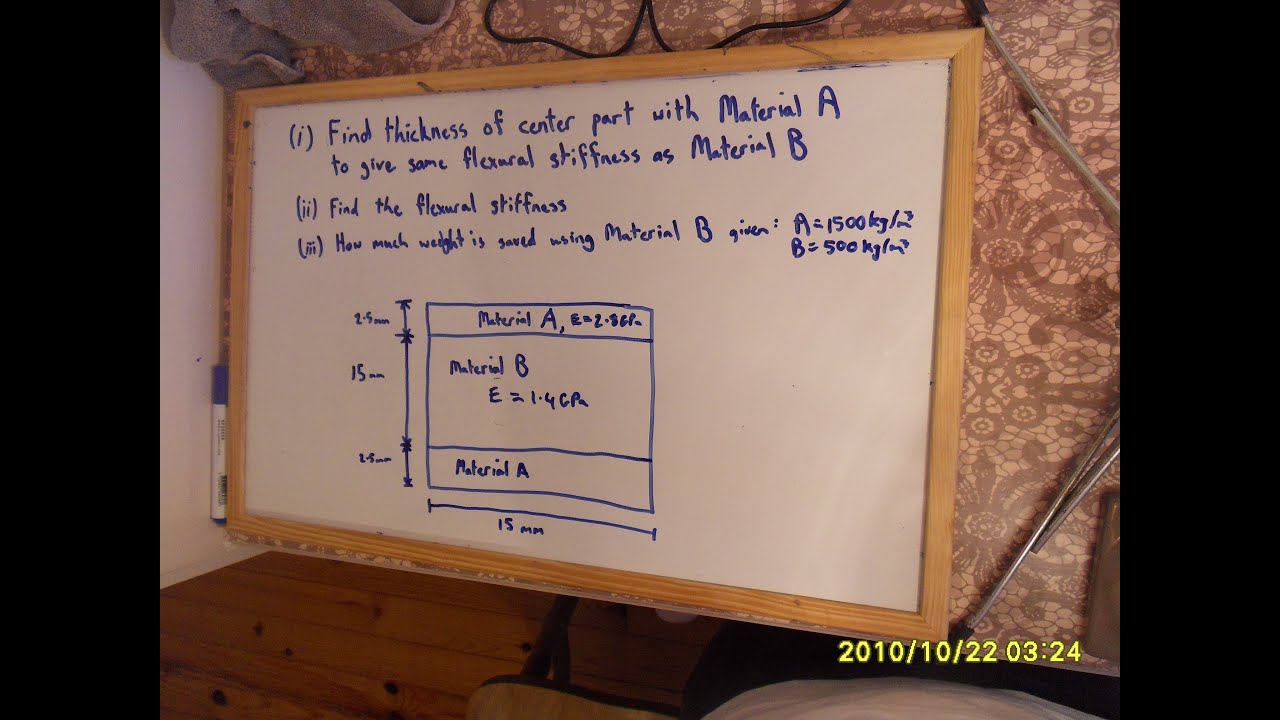 (i) Find thickness of center part with Material A
to give same flexural stiffness as Material B
(ii) Find the flexural stiffness
(iii) How much weight is saved using Material B given: A=1500kg/m³
B=500kg/m³
2.5mm
Material A, E=2.8GPa
15mm
Material B
E=1.4GPa
2.5mm
Material A
15mm
2010/10/22 03:24